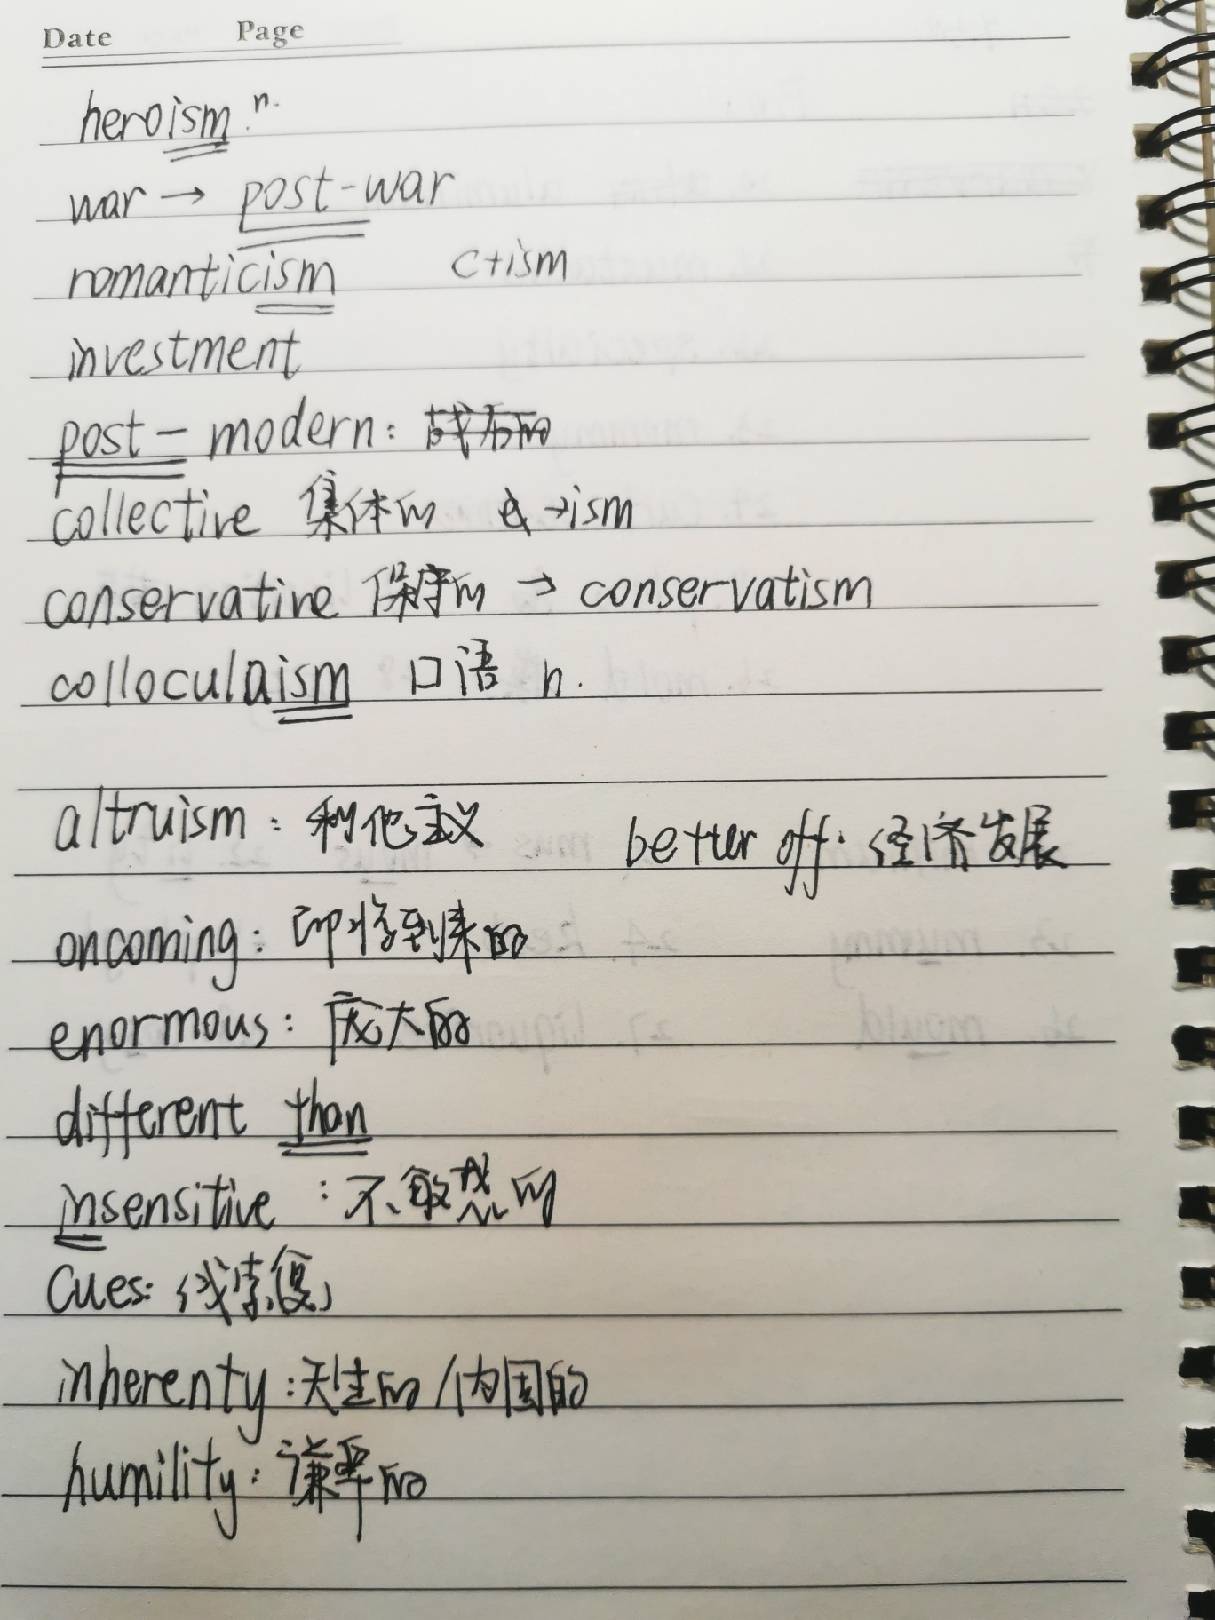 Date Page
heroism n.
war → post-war
romanticism c+ism
investment
post-modern: 战后的
collective 集体的 →ism
conservative 保守的 → conservatism
colloculaism 口语 n.
altruism: 利他主义 better off: 经济发展
oncoming: 即将到来的
enormous: 庞大的
different than
insensitive : 不敏感的
Cues: 线索
inherenty: 天生的/内固的
humility: 谦卑的